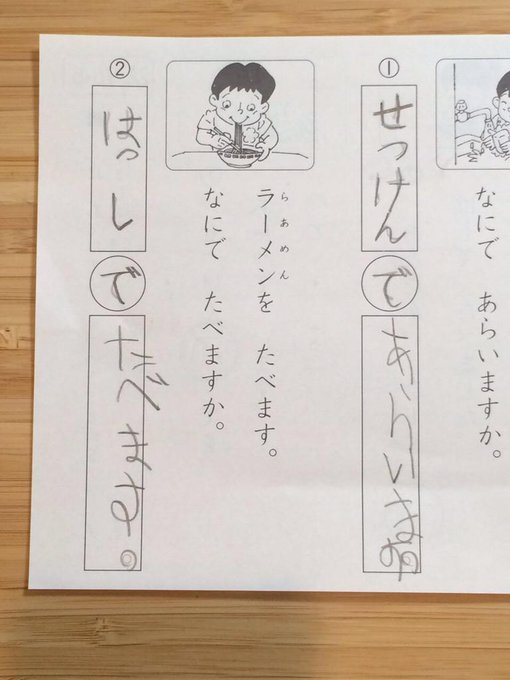 なにで あらいますか。
①
せっけん で あらいます。
らあめん
ラーメンを たべます。
なにで たべますか。
②
はっし で たべます。